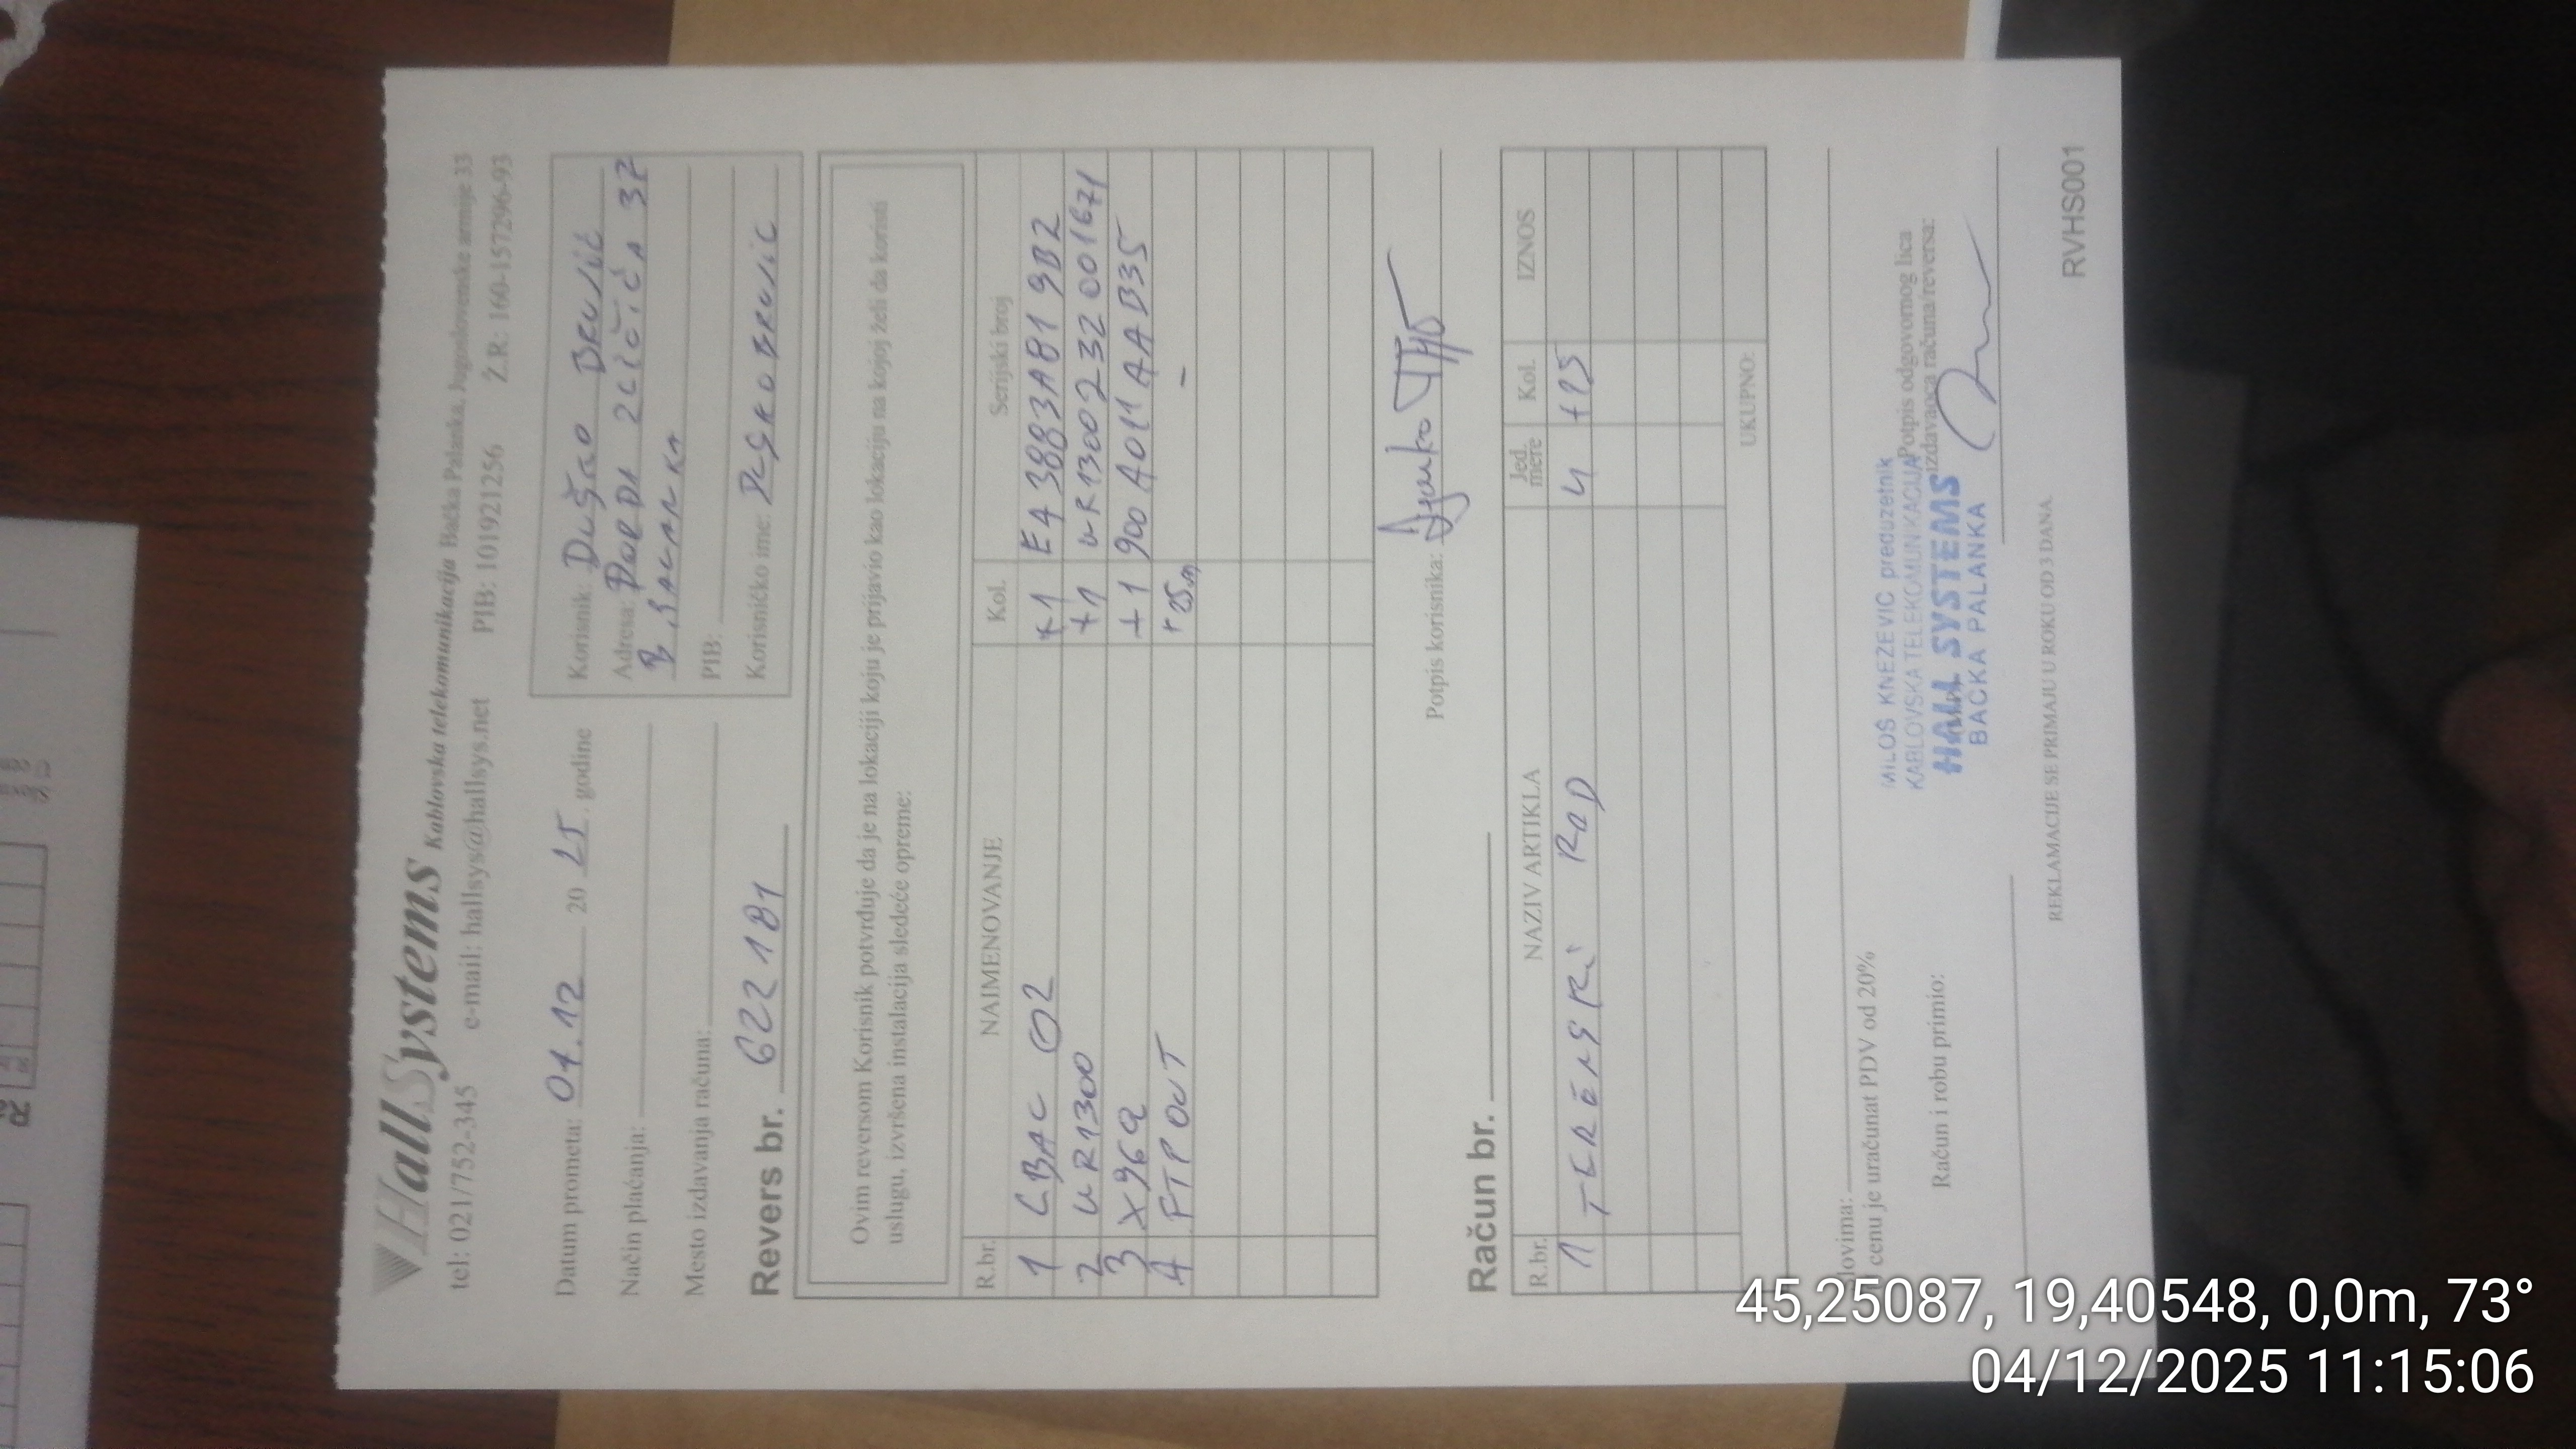 HallSystems Kablovska telekomunikacija Bačka Palanka, Jugoslovenske armije 33
tel: 021/752-345 e-mail: hallsys@hallsys.net PIB: 101921256 Ž.R: 160-157296-93
Datum prometa: 04.12 20 25. godine
Način plaćanja:
Mesto izdavanja računa:
Revers br. 622181
Korisnik: Duško
Adresa: 37
PIB:
Korisničko ime:
Ovim reversom Korisnik potvrđuje da je na lokaciji koju je prijavio kao lokaciju na kojoj želi da koristi
uslugu, izvršena instalacija sledeće opreme:
R.br. NAIMENOVANJE Kol. Serijski broj
1 LBAC +1 E43883A819B2
2 WR1300 +1 WR1300232001671
3 X96Q +1 900A011AAB35
4 FTP OUT +25m -
Potpis korisnika:
Račun br.
R.br. NAZIV ARTIKLA Jed. mere Kol. IZNOS
1 TERENSKI RAD
UKUPNO:
lovima:
cenu je uračunat PDV od 20%
Račun i robu primio:
MILOŠ KNEŽEVIĆ preduzetnik
KABLOVSKA TELEKOMUNIKACIJA
HALL SYSTEMS
BAČKA PALANKA
Potpis odgovornog lica
izdavaoca računa/reversa:
REKLAMACIJE SE PRIMAJU U ROKU OD 3 DANA
RVHS001
45,25087, 19,40548, 0,0m, 73°
04/12/2025 11:15:06